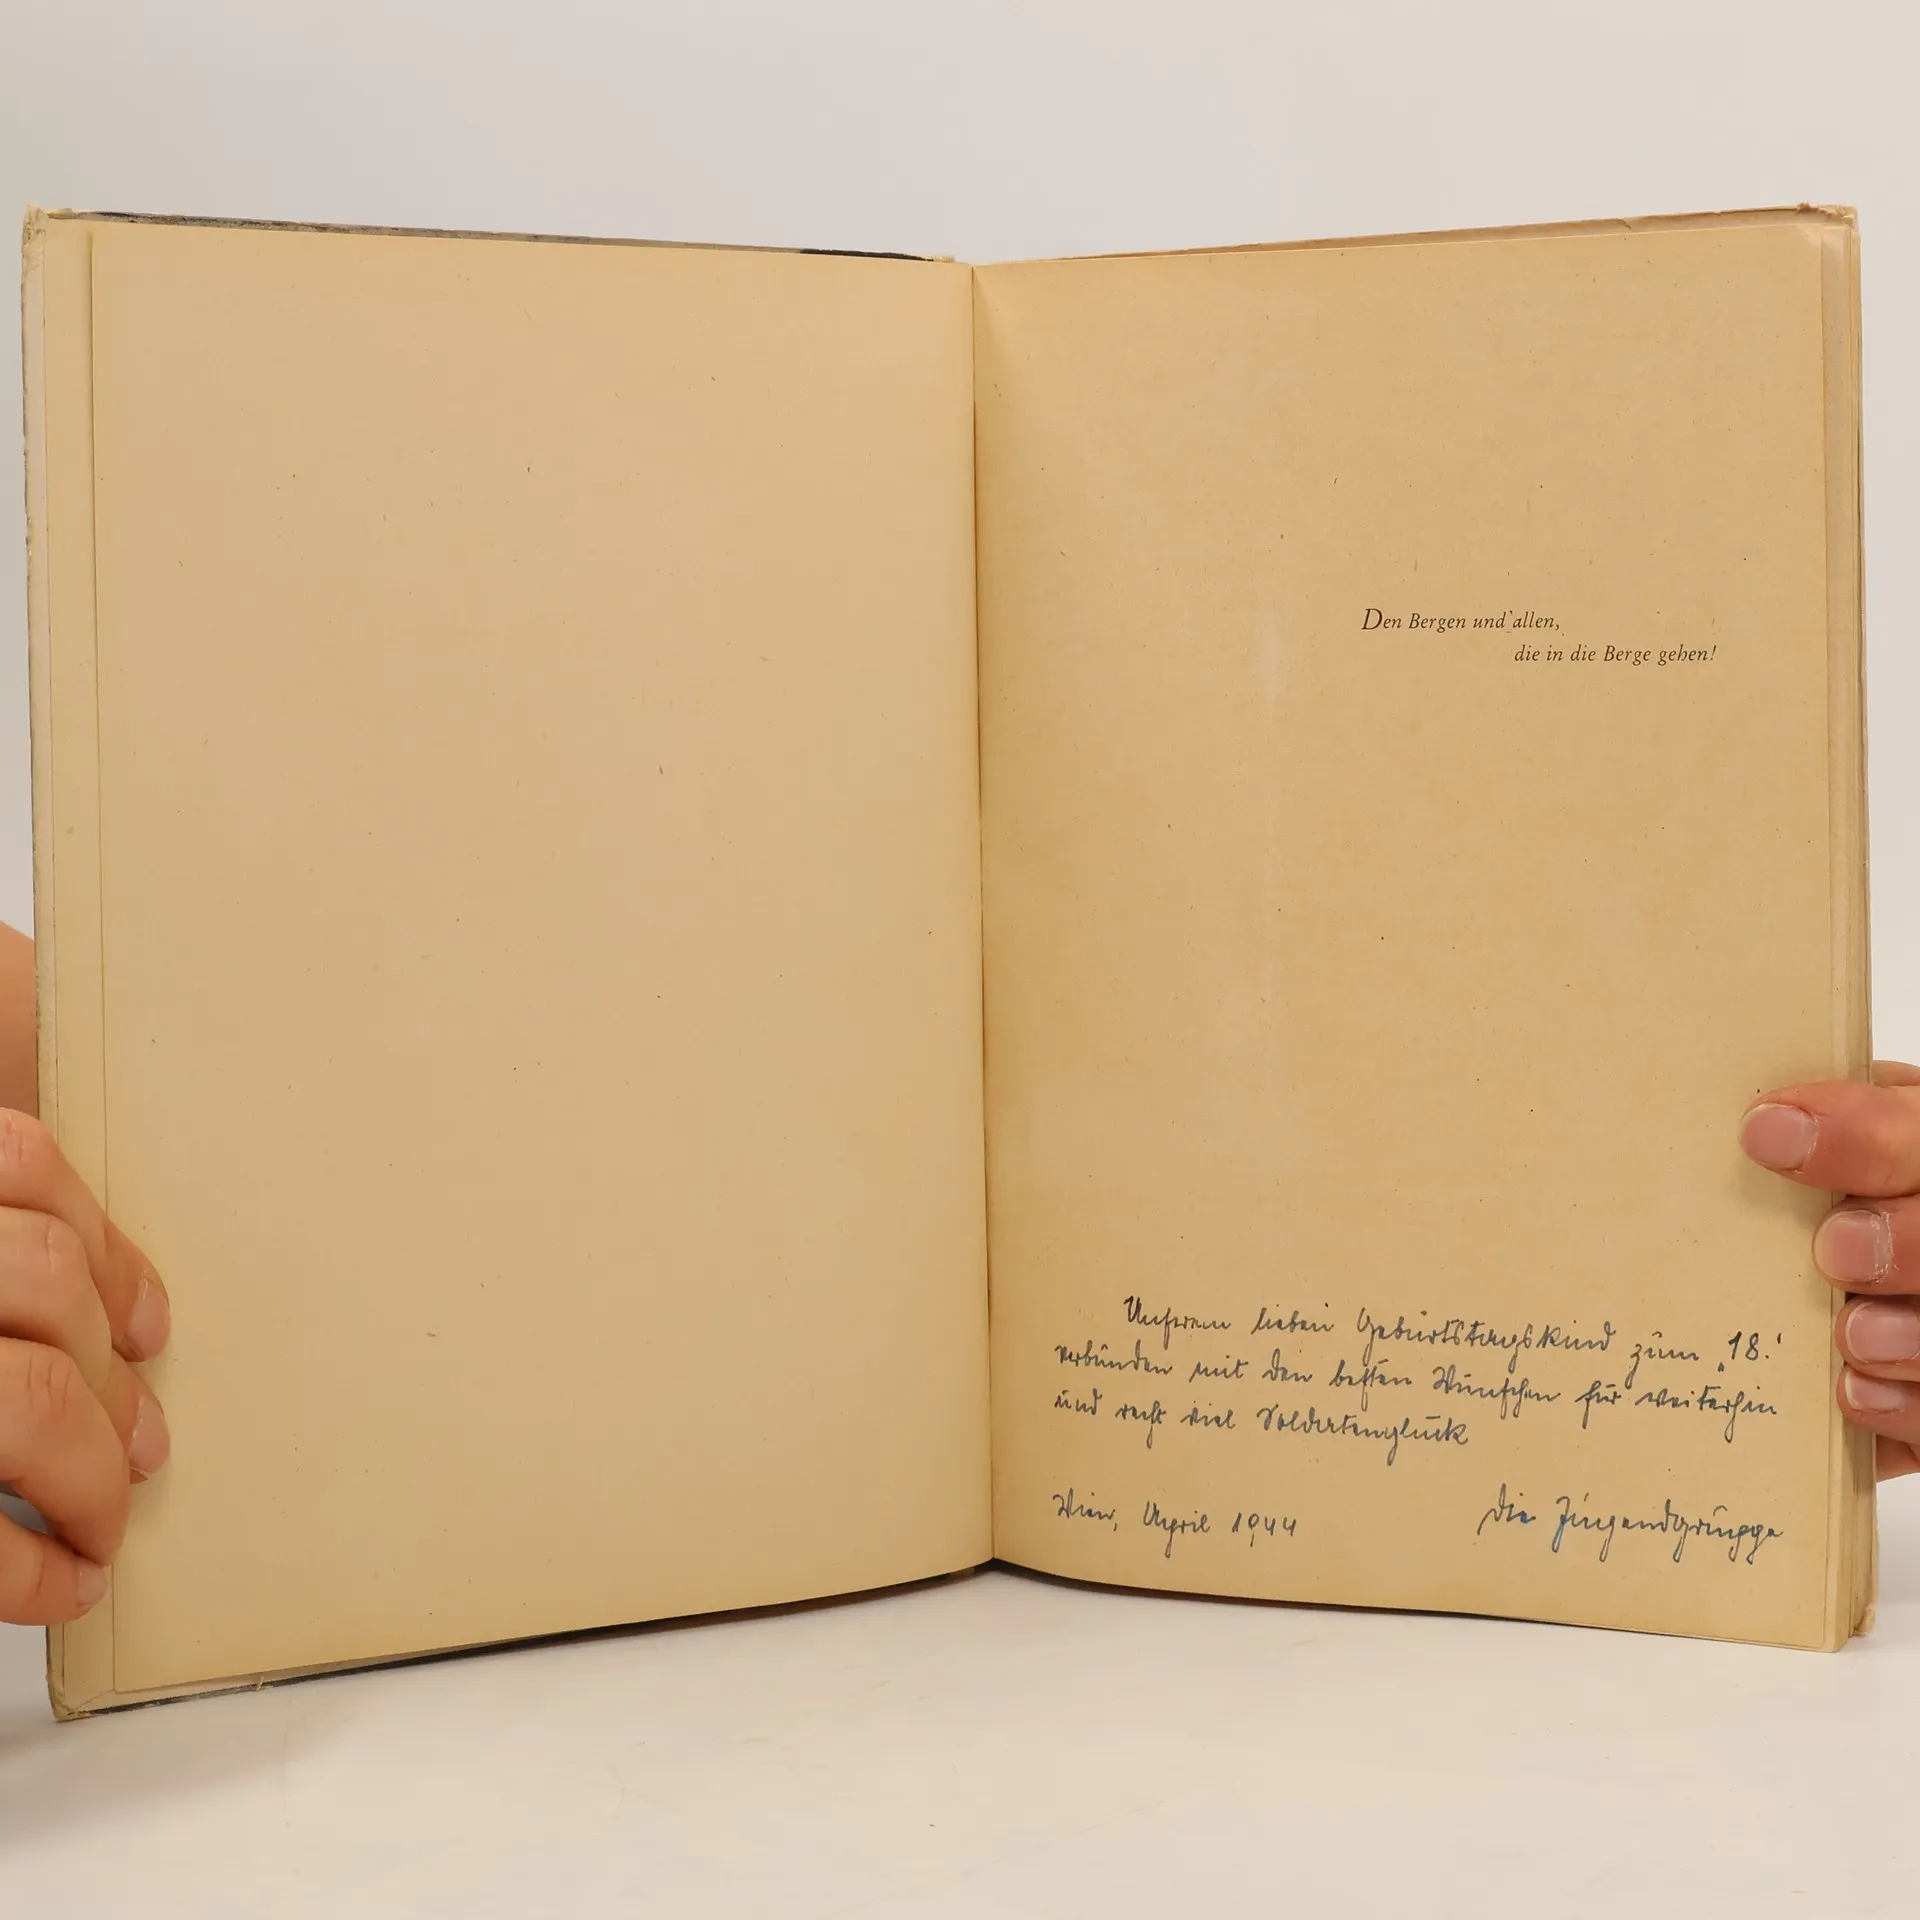 Den Bergen und allen,
die in die Berge gehen!
Unserem lieben Geburtstagskind zum „18.'
verbunden mit den besten Wünschen für weiterhin
und recht viel Soldatenglück
Wien, April 1944
Die Jugendgruppe